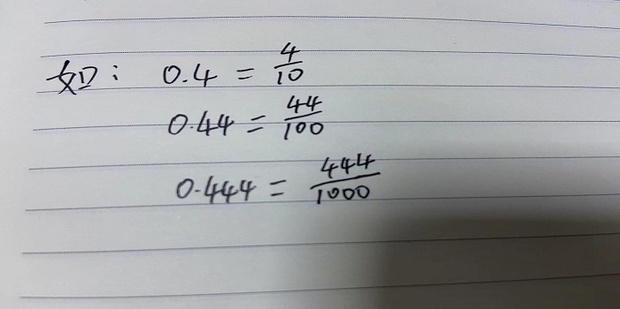 如：0.4 = 4/10
0.44 = 44/100
0.444 = 444/1000